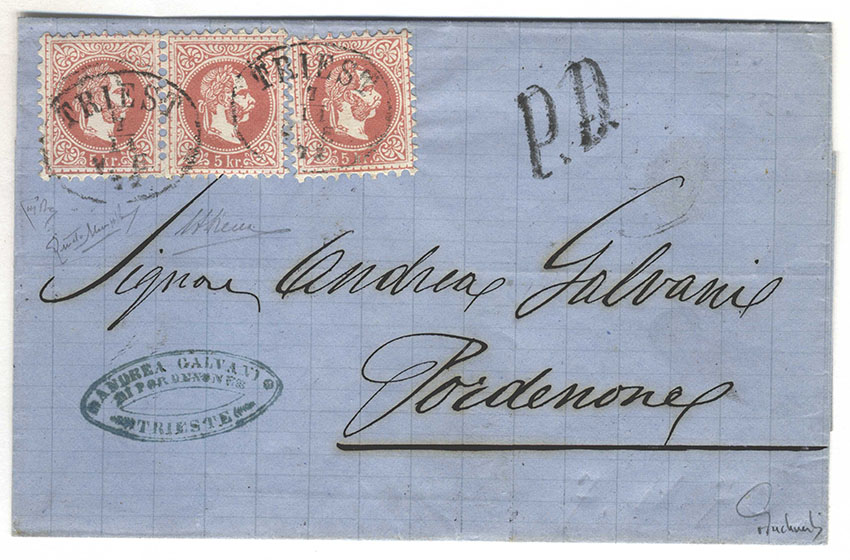 TRIEST
TRIEST
5 kr.
5 kr.
5 kr.
P.D.
Signor Andrea Galvani
Pordenone
ANDREA GALVANI
DI PORDENONE
TRIESTE